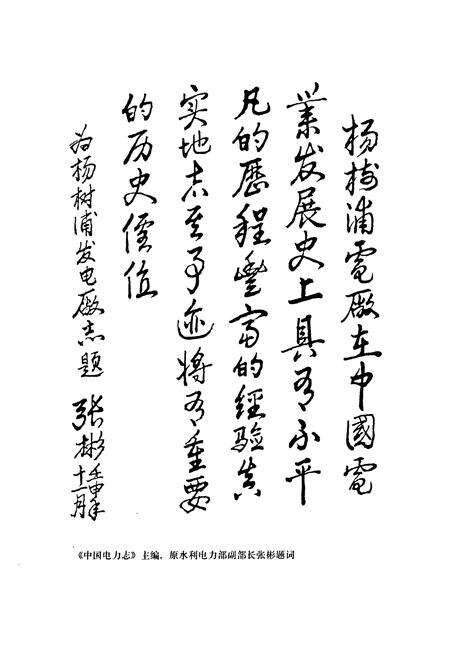 杨树浦電廠在中國電
業发展史上具有不平
凡的歷程豐富的經验真
实地志其事迹将有重要
的历史價值
为杨树浦发电廠志题
张彬 壬申年
十一月
《中国电力志》主编，原水利电力部副部长张彬题词